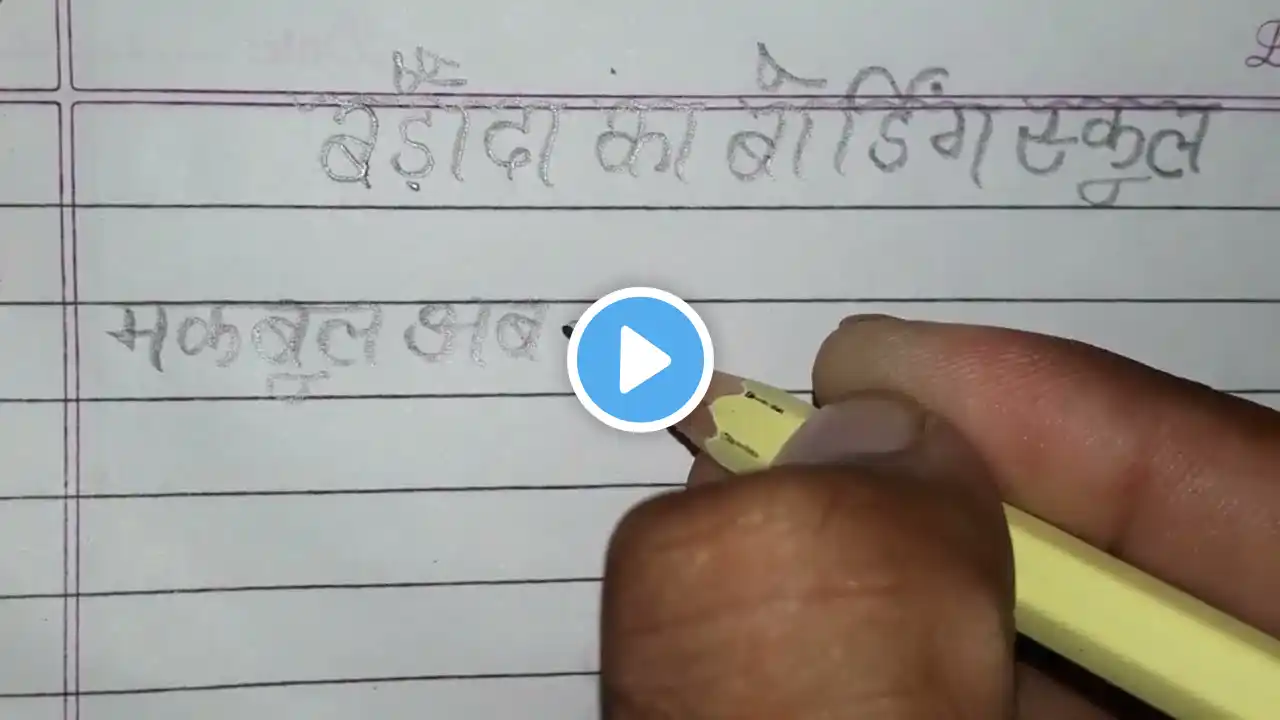 बड़ौदा का बोर्डिंग स्कूल
मकबूल अब